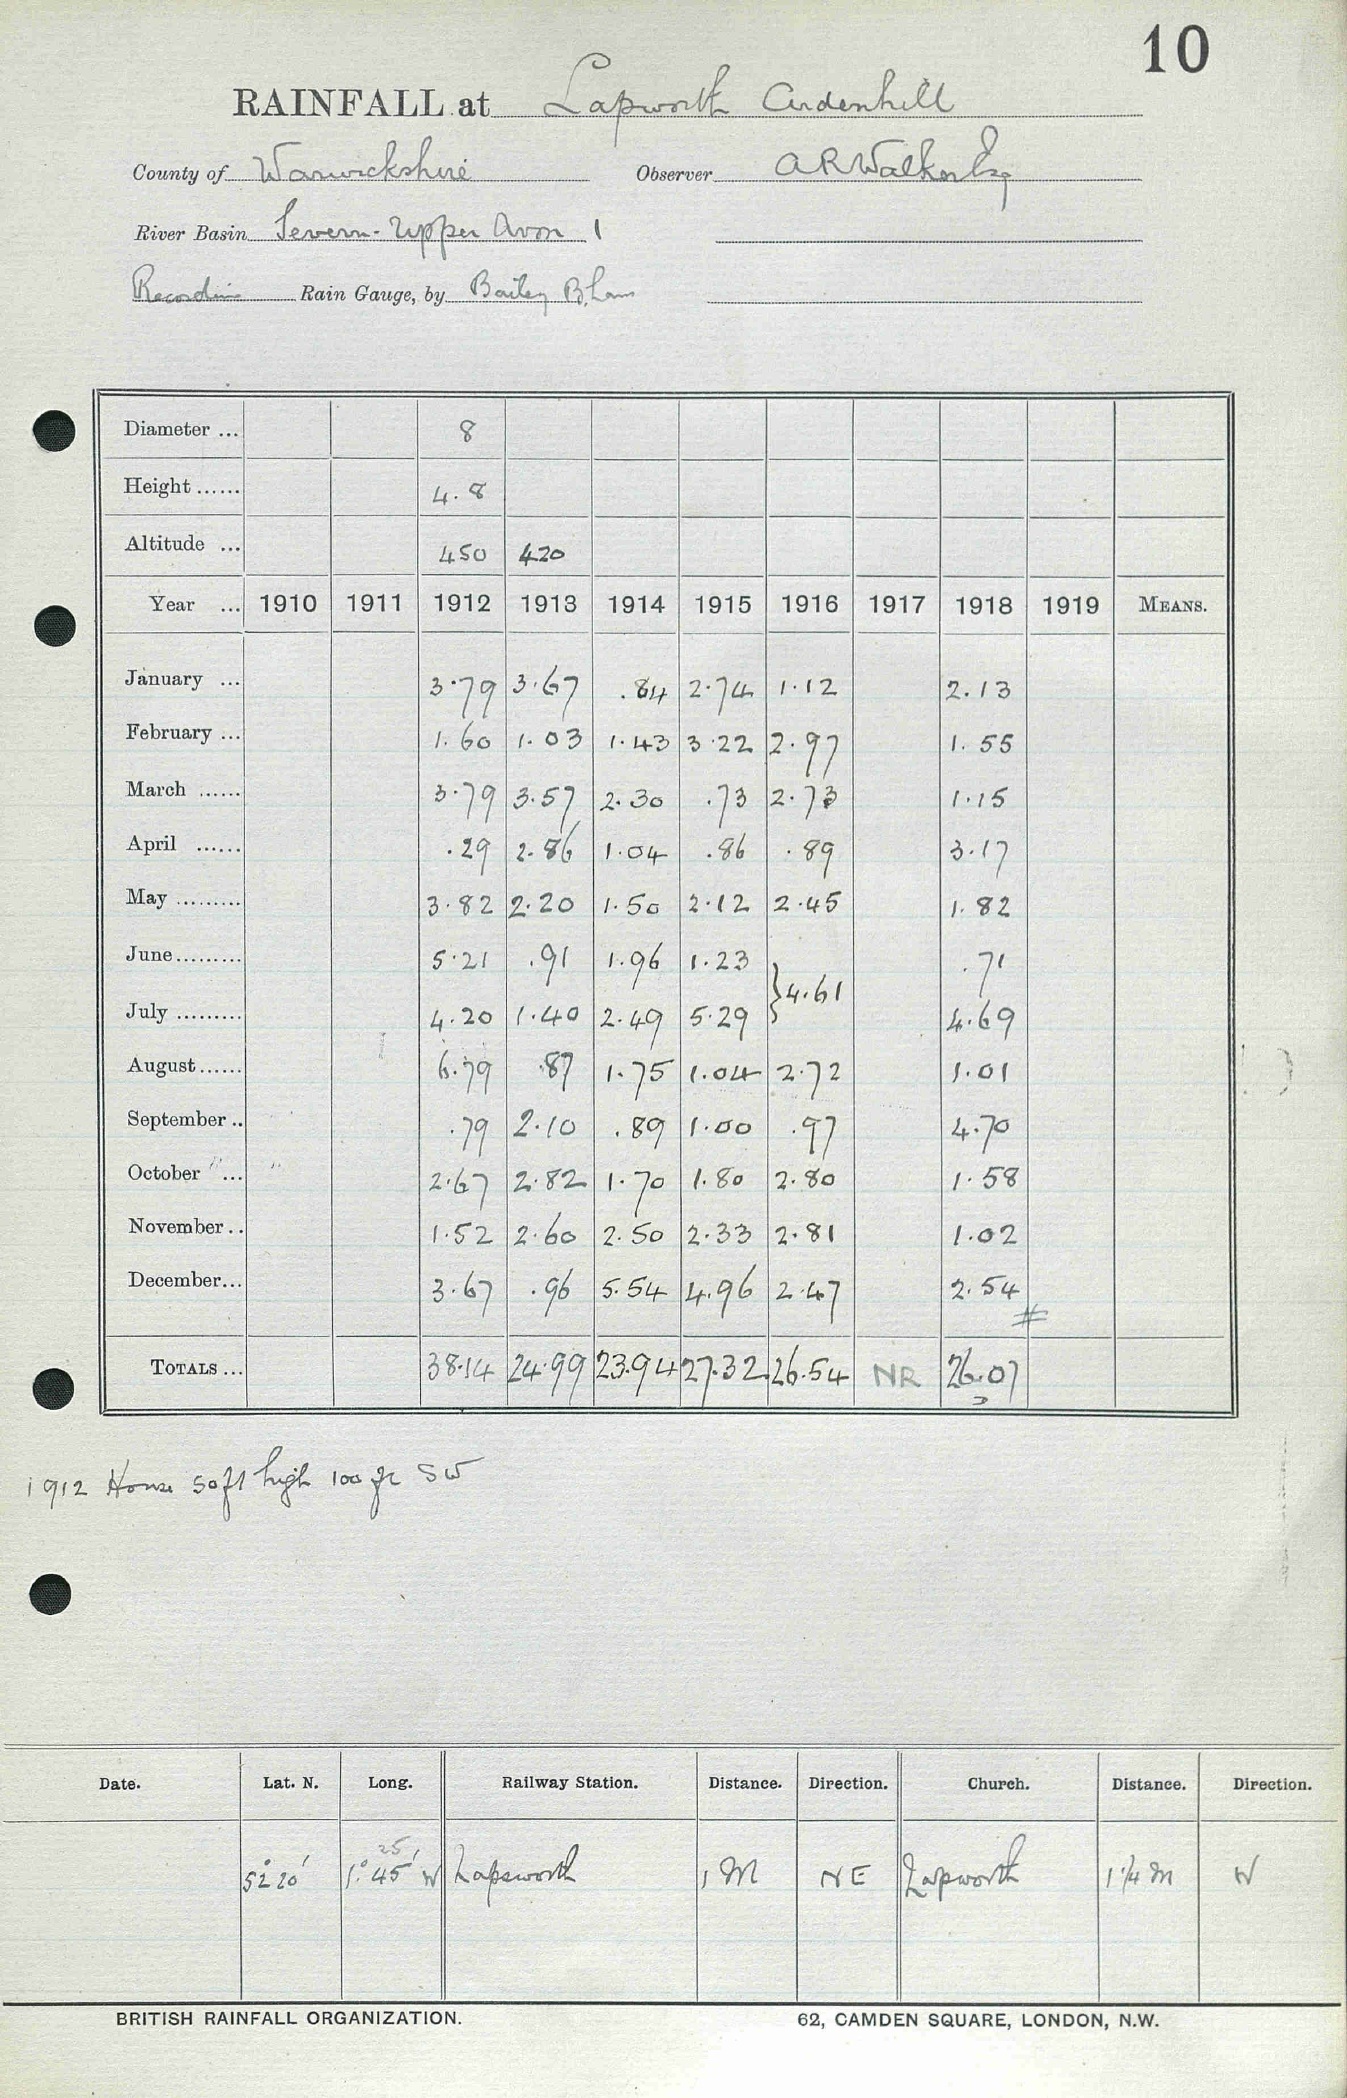 10
RAINFALL at Lapworth Ardenhill
County of Warwickshire Observer A R Walker Esq
River Basin Severn - Upper Avon 1
Recording Rain Gauge, by Bailey B.ham
Diameter ... 8
Height ...... 4.8
Altitude ... 450 420
Year ... 1910 1911 1912 1913 1914 1915 1916 1917 1918 1919 MEANS.
January ... 3.79 3.67 .84 2.74 1.12 2.13
February ... 1.60 1.03 1.43 3.22 2.97 1.55
March ...... 3.79 3.57 2.30 .73 2.73 1.15
April ...... .29 2.86 1.04 .86 .89 3.17
May ......... 3.82 2.20 1.50 2.12 2.45 1.82
June ......... 5.21 .91 1.96 1.23 .71
} 4.61
July ......... 4.20 1.40 2.49 5.29 4.69
August ...... 6.79 .87 1.75 1.04 2.72 1.01
September .. .79 2.10 .89 1.00 .97 4.70
October ... 2.67 2.82 1.70 1.80 2.80 1.58
November .. 1.52 2.60 2.50 2.33 2.81 1.02
December ... 3.67 .96 5.54 4.96 2.47 2.54
#
TOTALS ... 38.14 24.99 23.94 27.32 26.54 NR 26.07
1912 House 50 ft high 100 ft SW
Date. Lat. N. Long. Railway Station. Distance. Direction. Church. Distance. Direction.
25
52° 20' 1° 45' W Lapworth 1 M NE Lapworth 1 1/4 M W
BRITISH RAINFALL ORGANIZATION. 62, CAMDEN SQUARE, LONDON, N.W.